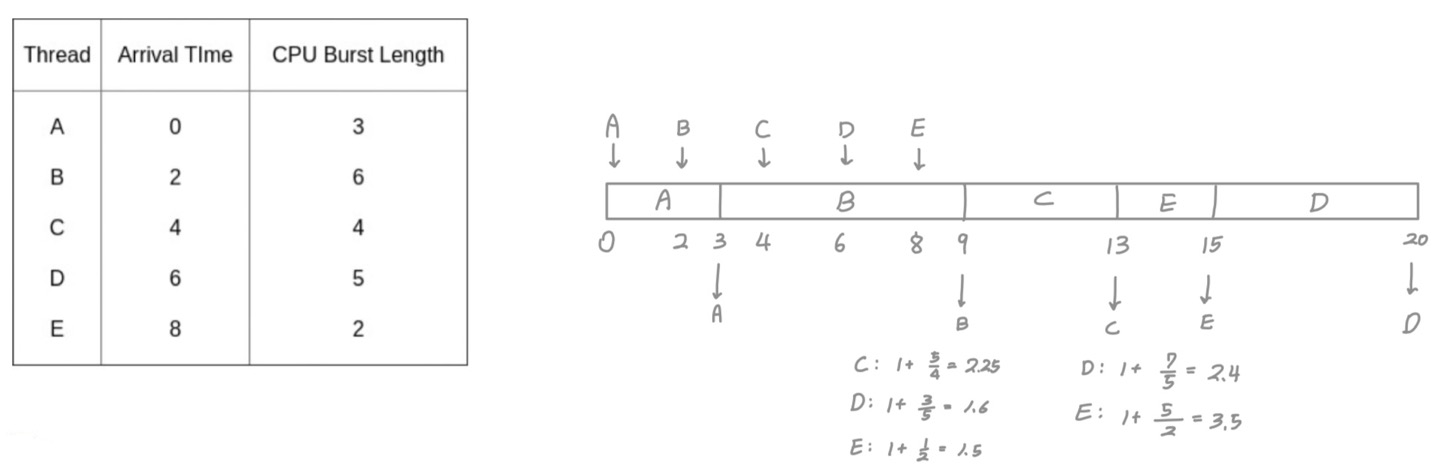 Thread Arrival TIme CPU Burst Length
A 0 3
B 2 6
C 4 4
D 6 5
E 8 2
A B C D E
↓ ↓ ↓ ↓ ↓
A B C E D
0 2 3 4 6 8 9 13 15 20
↓ ↓ ↓ ↓ ↓
A B C E D
C: 1+ 5/4 = 2.25
D: 1+ 3/5 = 1.6
E: 1+ 1/2 = 1.5
D: 1+ 7/5 = 2.4
E: 1+ 5/2 = 3.5